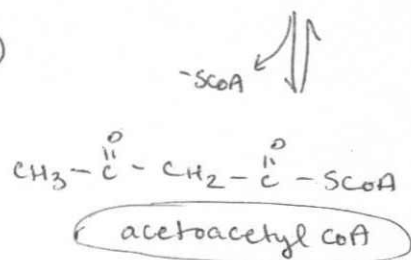 )
-SCoA
O O
CH3 - C - CH2 - C - SCoA
acetoacetyl CoA